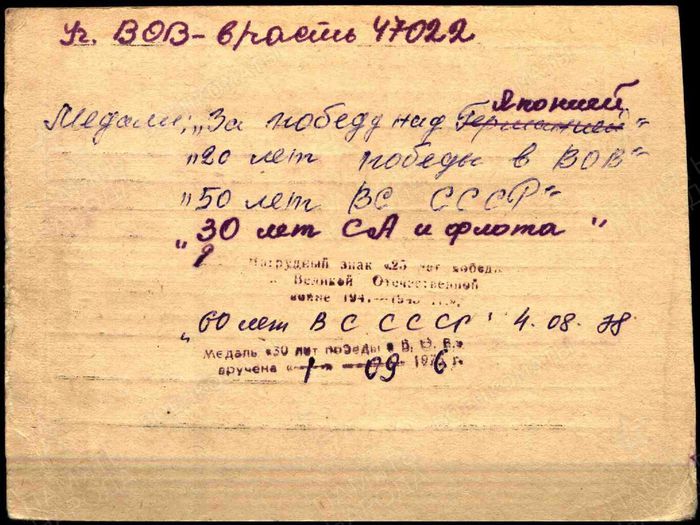 уч. ВОВ - в/часть 47022
Японией
Медали: „За победу над Германией“
„20 лет победы в ВОВ“
„50 лет ВС СССР“
„30 лет СА и флота“
Нагрудный знак «25 лет победы
в Великой Отечественной
войне 1941—1945 гг.»
„60 лет ВС СССР“ 4.08.78
Медаль «30 лет победы в В. О. В.»
вручена « 1 » 09 1976 г.